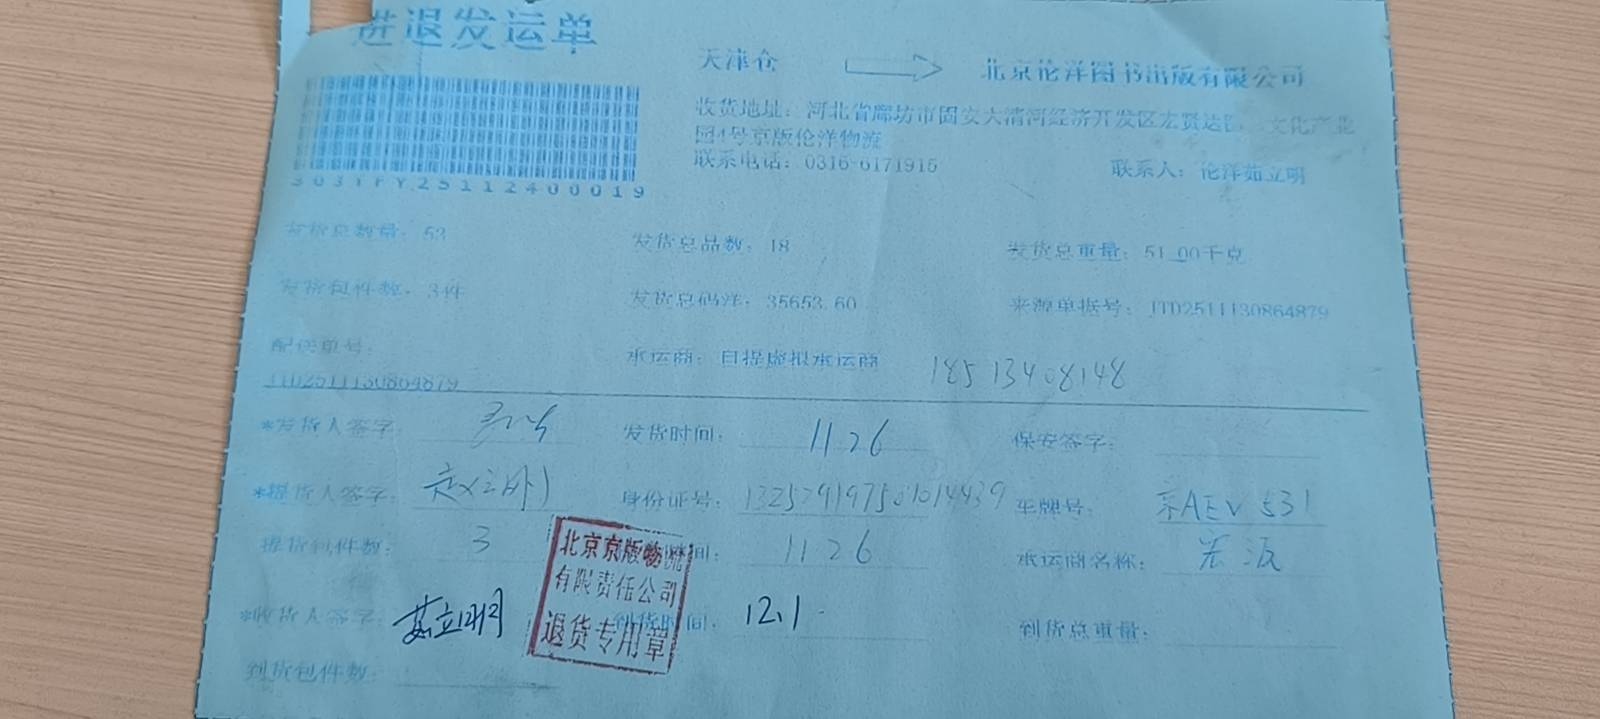 进退发运单
天津仓 北京伦洋图书出版有限公司
收货地址：河北省廊坊市固安大清河经济开发区宏贤达 文化产业
园4号京版伦洋物流
联系电话：0316-6171915 联系人：伦洋茹立明
303TFY25112400019
发货总数量：53 发货总品数：18 发货总重量：51.00千克
发货包件数：3件 发货总码洋：35653.60 来源单据号：JTD2511130864879
配送单号： 承运商：自提虚拟承运商 18513408148
JTD2511130864879
*发货人签字： 发货时间：11 26 保安签字：
*提货人签字： 身份证号： 车牌号：京AEV531
提货包件数：3 时间：11 26 承运商名称：
*收货人签字：茹立明 到货时间：12.1 到货总重量：
到货包件数：
北京京版物流
有限责任公司
退货专用章